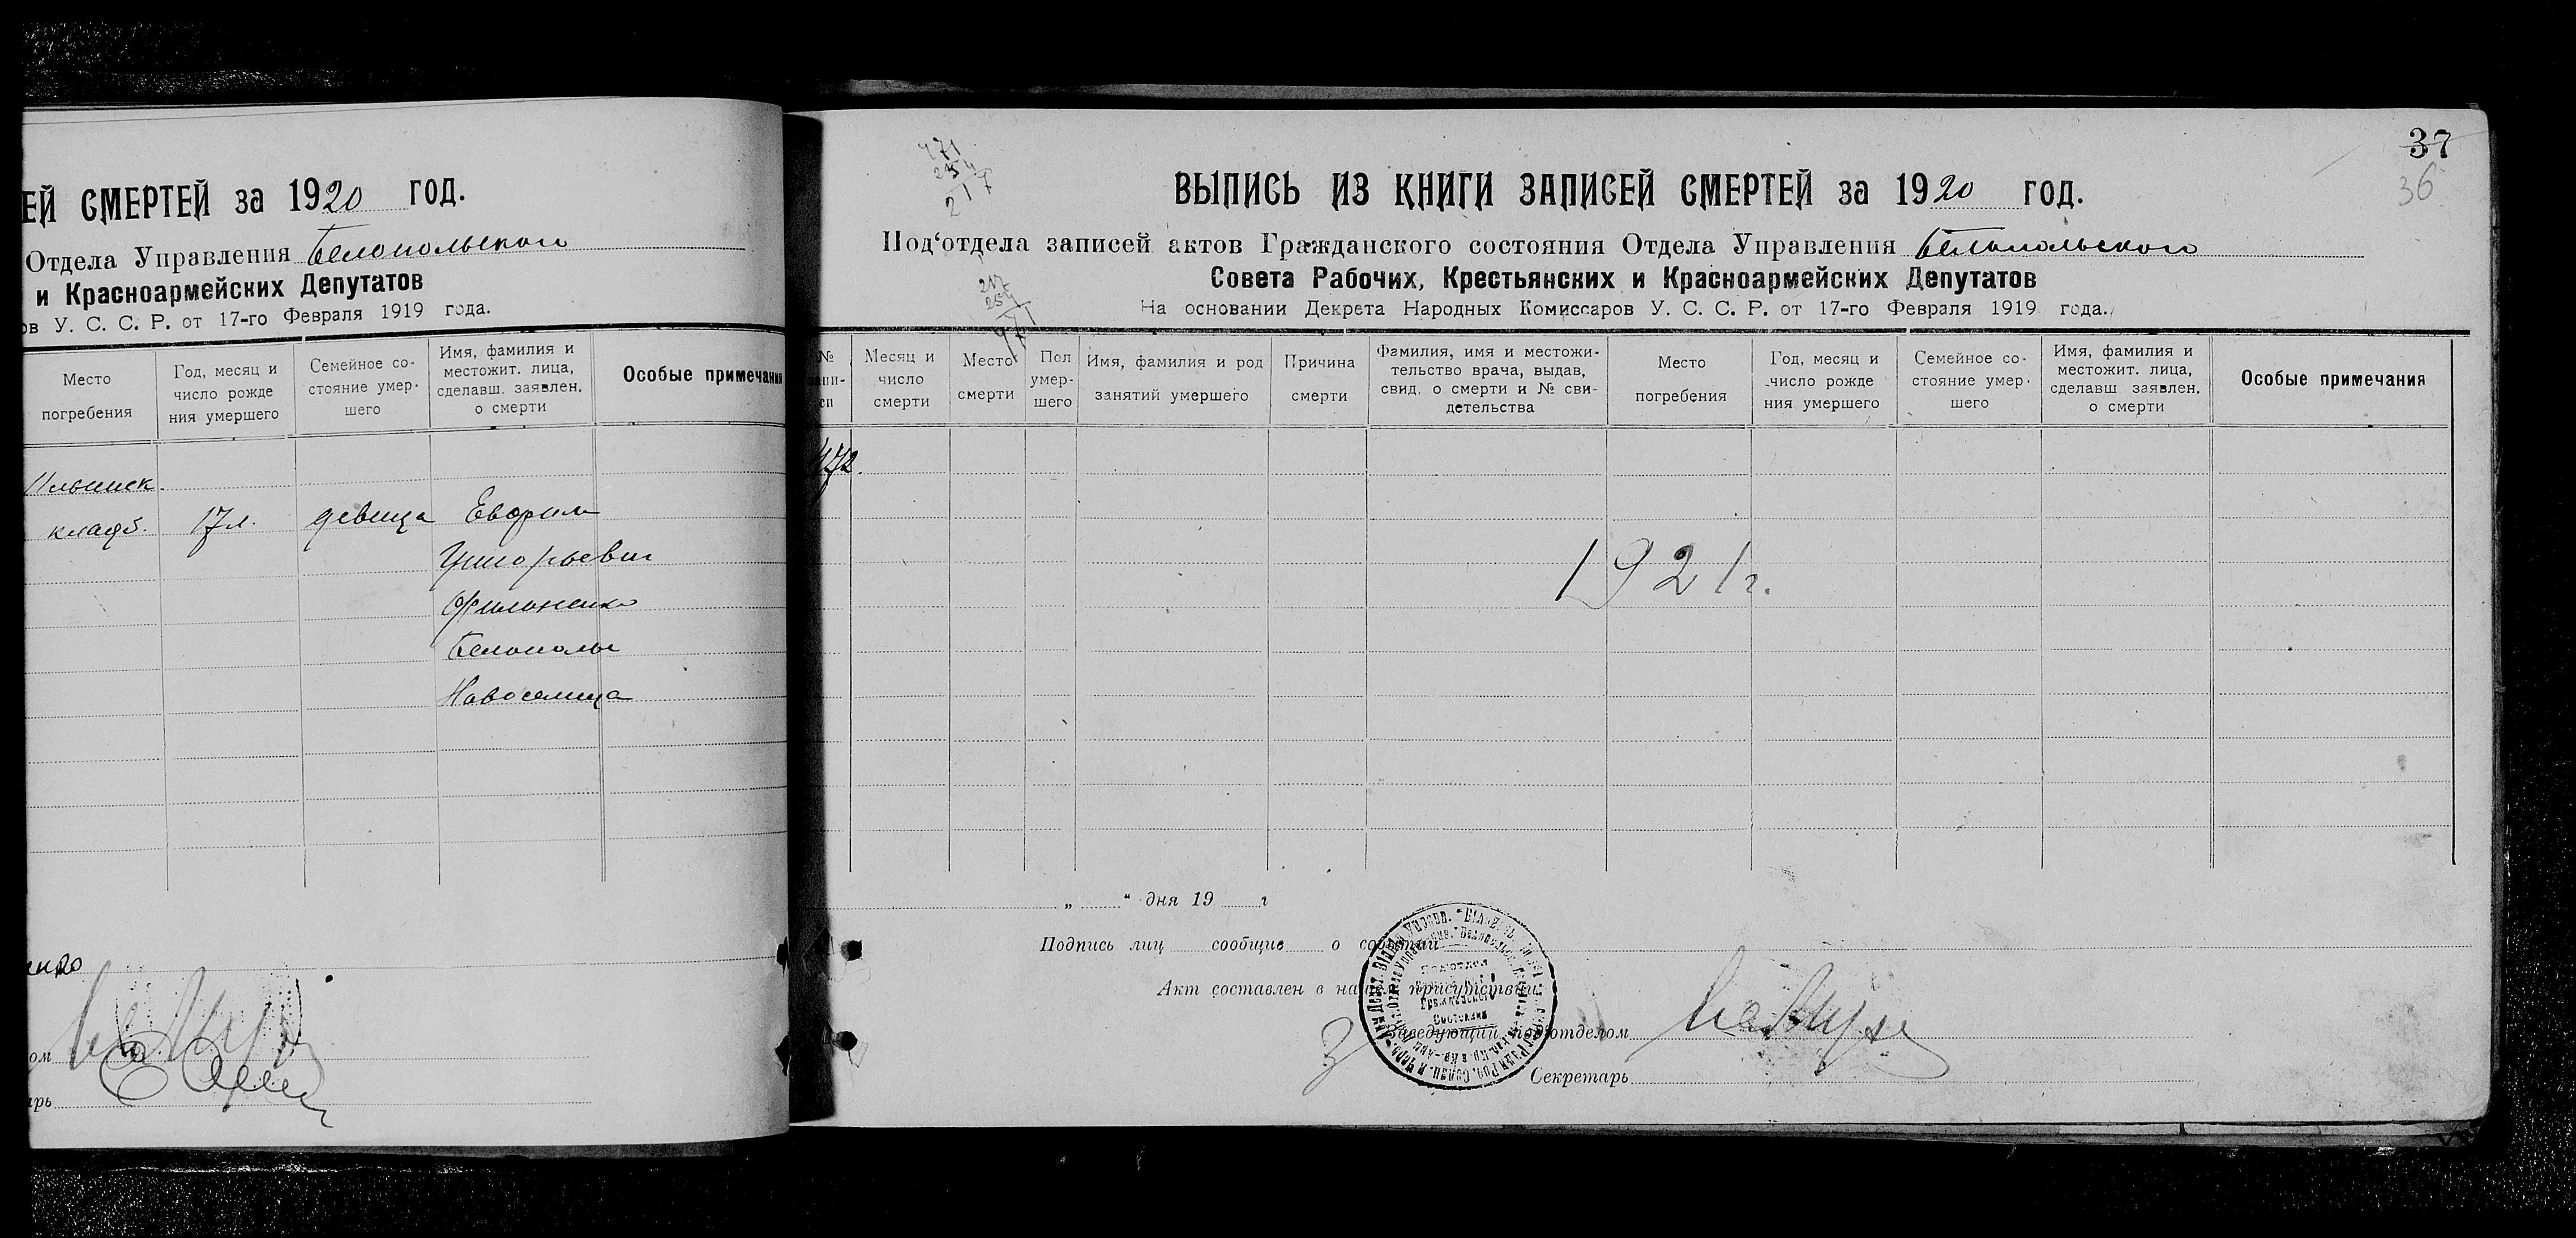 ЕЙ СМЕРТЕЙ за 1920 год.
Отдела Управления Белопольского
и Красноармейских Депутатов
ов У. С. С. Р. от 17-го Февраля 1919 года.
Место погребения
Год, месяц и число рожде ния умершего
Семейное со-стояние умер-шего
Имя, фамилия и местожит. лица, сделавш. заявлен. о смерти
Особые примечания
Ильинск
кладб. 17 л. девица Евфим
Григорьевич
Фильченко
Белополье
Новоселица
37
36
471
254
217
217
254
471
ВЫПИСЬ ИЗ КНИГИ ЗАПИСЕЙ СМЕРТЕЙ за 1920 год.
Под‘отдела записей актов Гражданского состояния Отдела Управления Белопольского
Совета Рабочих, Крестьянских и Красноармейских Депутатов
На основании Декрета Народных Комиссаров У. С. С. Р. от 17-го Февраля 1919 года.
№ запи-си
Месяц и число смерти
Место смерти
Пол умер-шего
Имя, фамилия и род занятий умершего
Причина смерти
Фамилия, имя и местожи-тельство врача, выдав, свид. о смерти и № сви-детельства
Место погребения
Год, месяц и число рожде ния умершего
Семейное со-стояние умер-шего
Имя, фамилия и местожит. лица, сделавш заявлен. о смерти
Особые примечания
472.
1921 г.
„ “ дня 19 г
Подпись лиц сообщив о событии
Акт составлен в нашем присутствии
Заведующий под'отделом
Секретарь